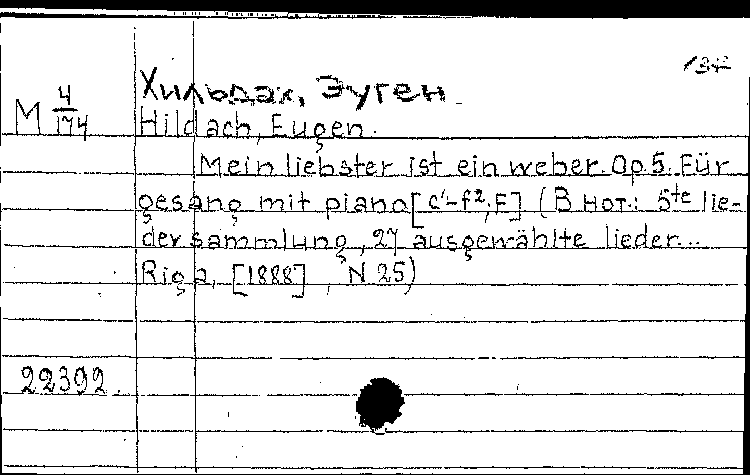 132
Хильдах, Эуген.
M 4/174
Hildach, Eugen.
Mein liebster ist ein weber. Op 5. Für
gesang mit piano [c'-f², F] (В нот.: 5te lie-
der sammlung, 27 ausgewählte lieder...
Riga, [1888], N 25)
22392.